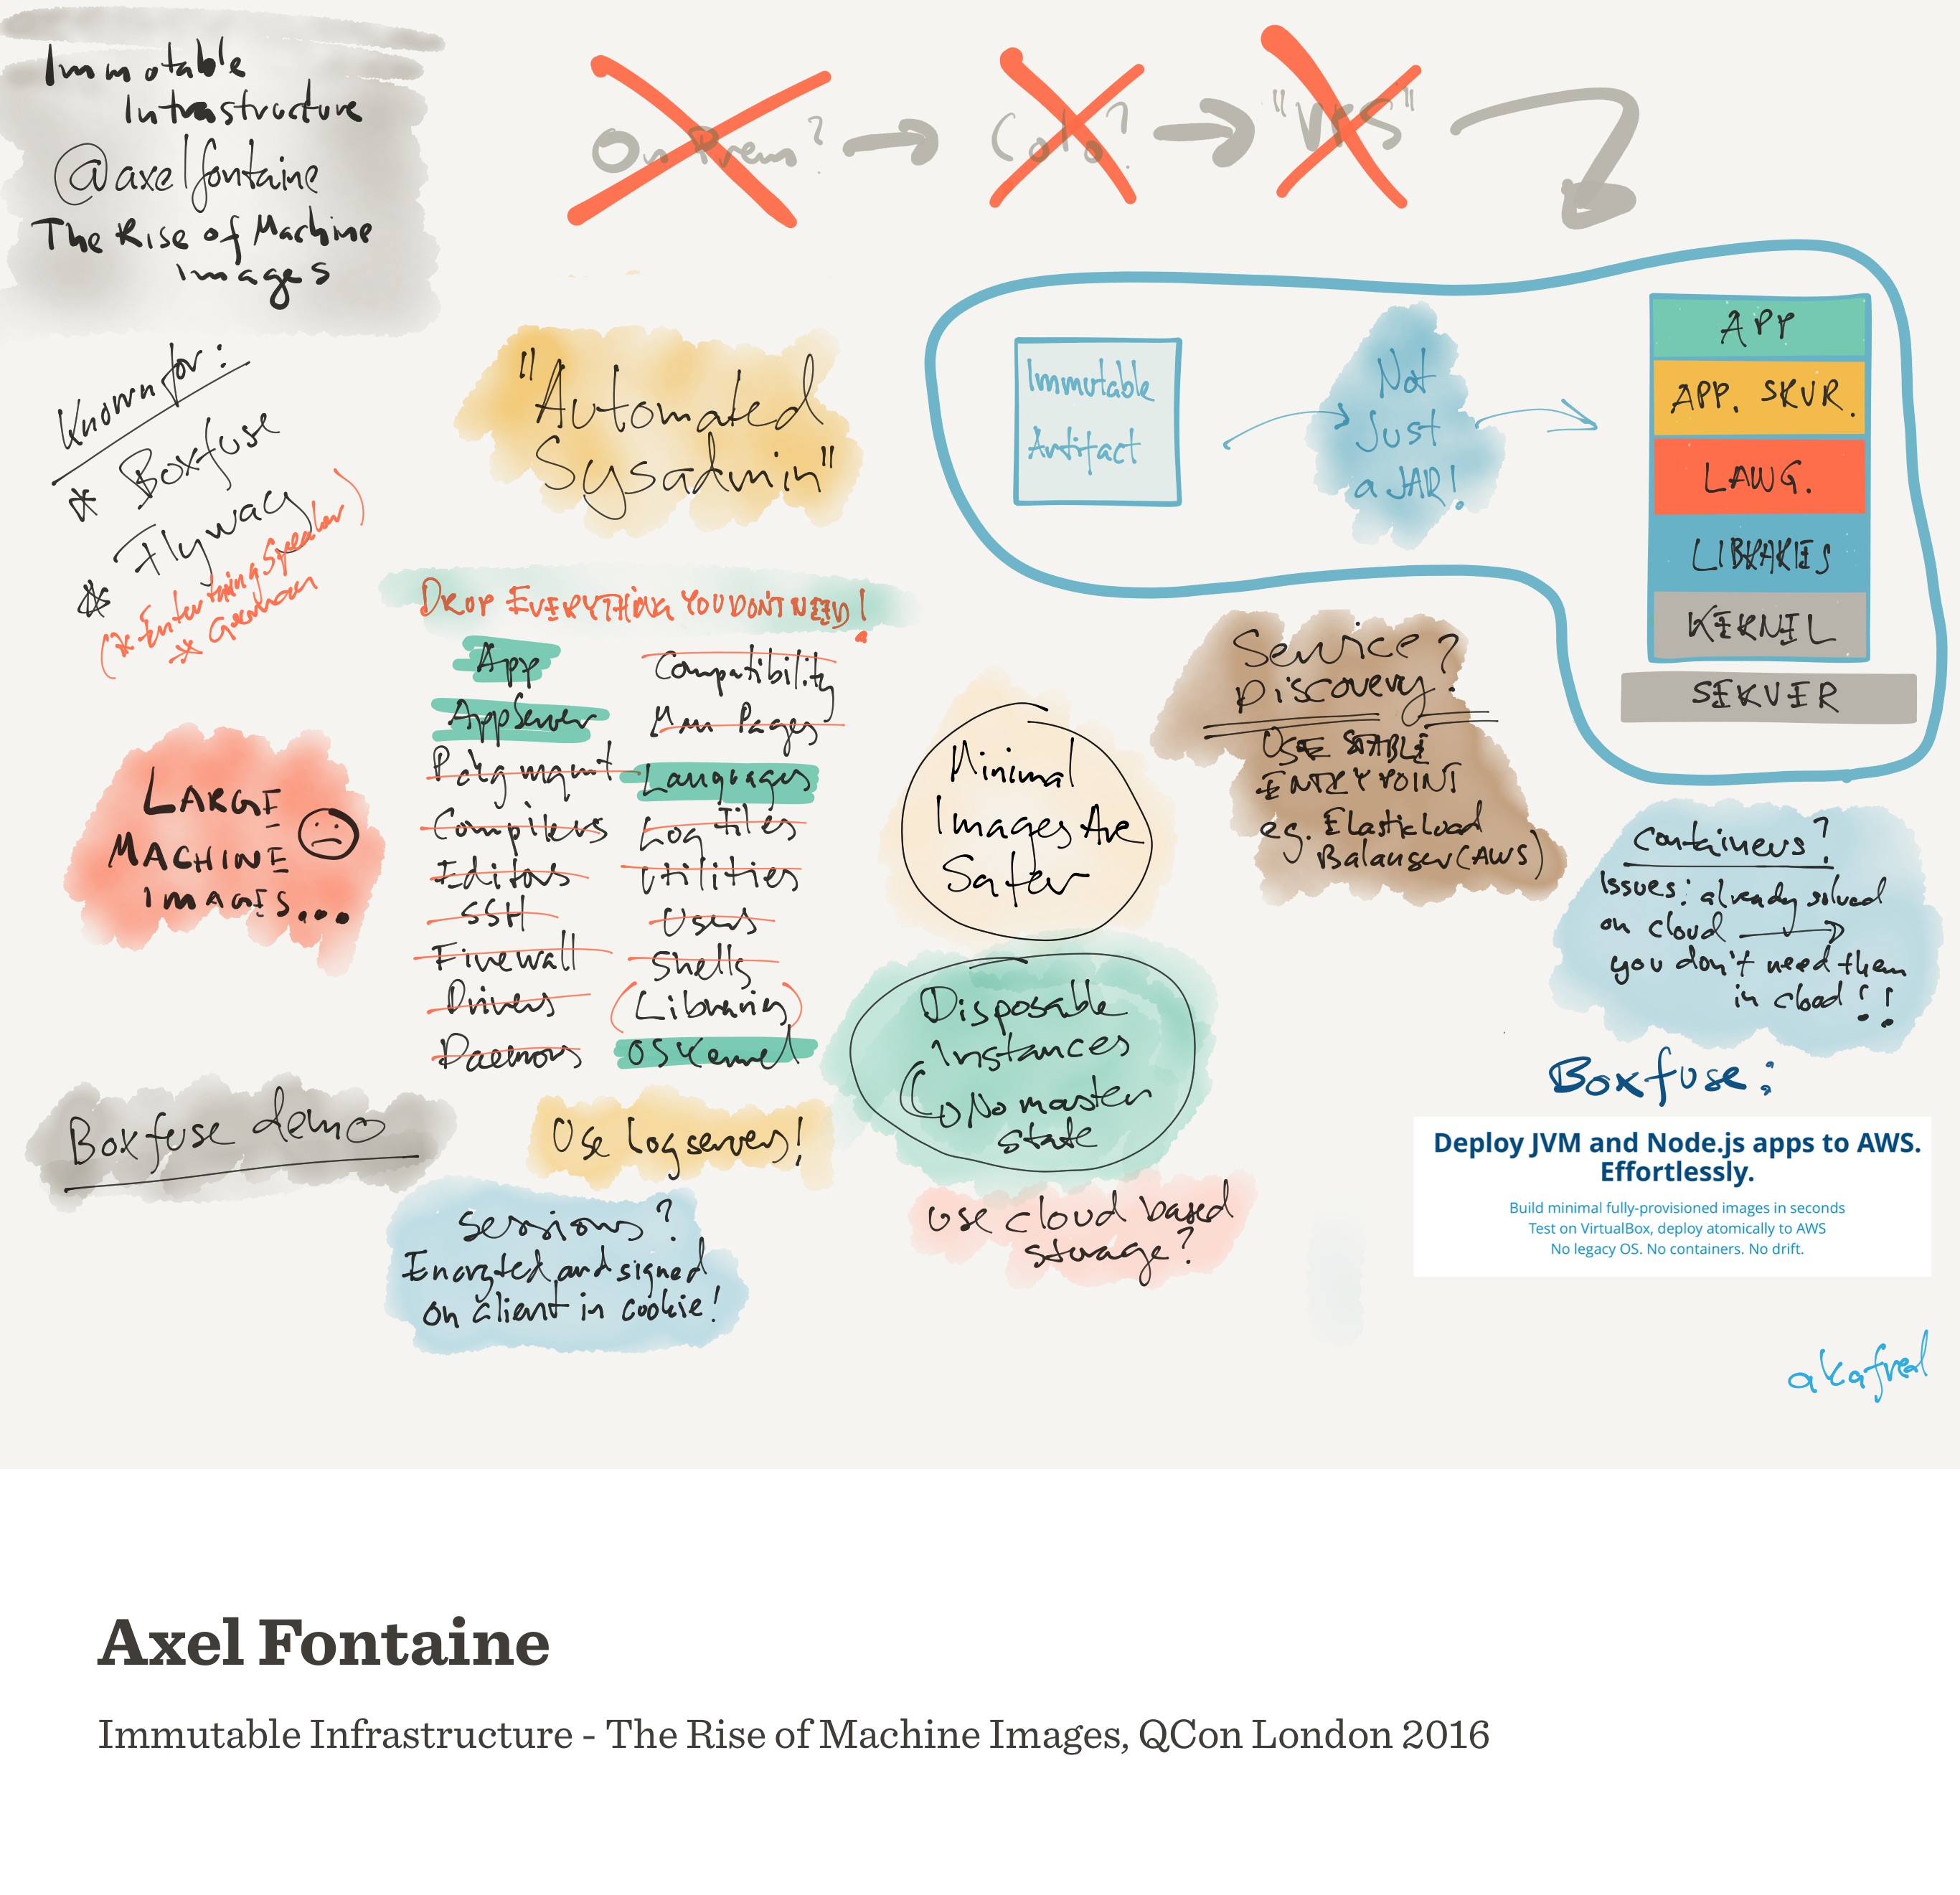 Immutable
Infrastructure
@axelfontaine
The Rise of Machine
images
On Prem? → Colo? → "VPS"
Known for:
* Boxfuse
* Flyway
(* Entertaining Speaker)
* German
"Automated
Sysadmin"
Immutable
Artifact
Not
Just
a JAR!
APP
APP. SRVR.
LANG.
LIBRARIES
KERNEL
SERVER
DROP EVERYTHING YOU DON'T NEED!
App
AppServer
Pckg mgmt
Compilers
Editors
SSH
Firewall
Drivers
Daemons
Compatibility
Man Pages
Languages
Log Files
Utilities
Users
Shells
(Libraries)
OS Kernel
LARGE
MACHINE
IMAGES...
Minimal
Images Are
Safer
Service?
Discovery?
USE STABLE
ENTRY POINT
eg. Elastic Load
Balanser (AWS)
Containers?
Issues: already solved
on cloud →
you don't need them
in cloud!!
Disposable
Instances
↳ No master
state
Boxfuse demo
Use log servers!
Sessions?
Encrypted and signed
on client in cookie!
Use cloud based
storage?
Boxfuse:
Deploy JVM and Node.js apps to AWS.
Effortlessly.
Build minimal fully-provisioned images in seconds
Test on VirtualBox, deploy atomically to AWS
No legacy OS. No containers. No drift.
akafred
Axel Fontaine
Immutable Infrastructure - The Rise of Machine Images, QCon London 2016